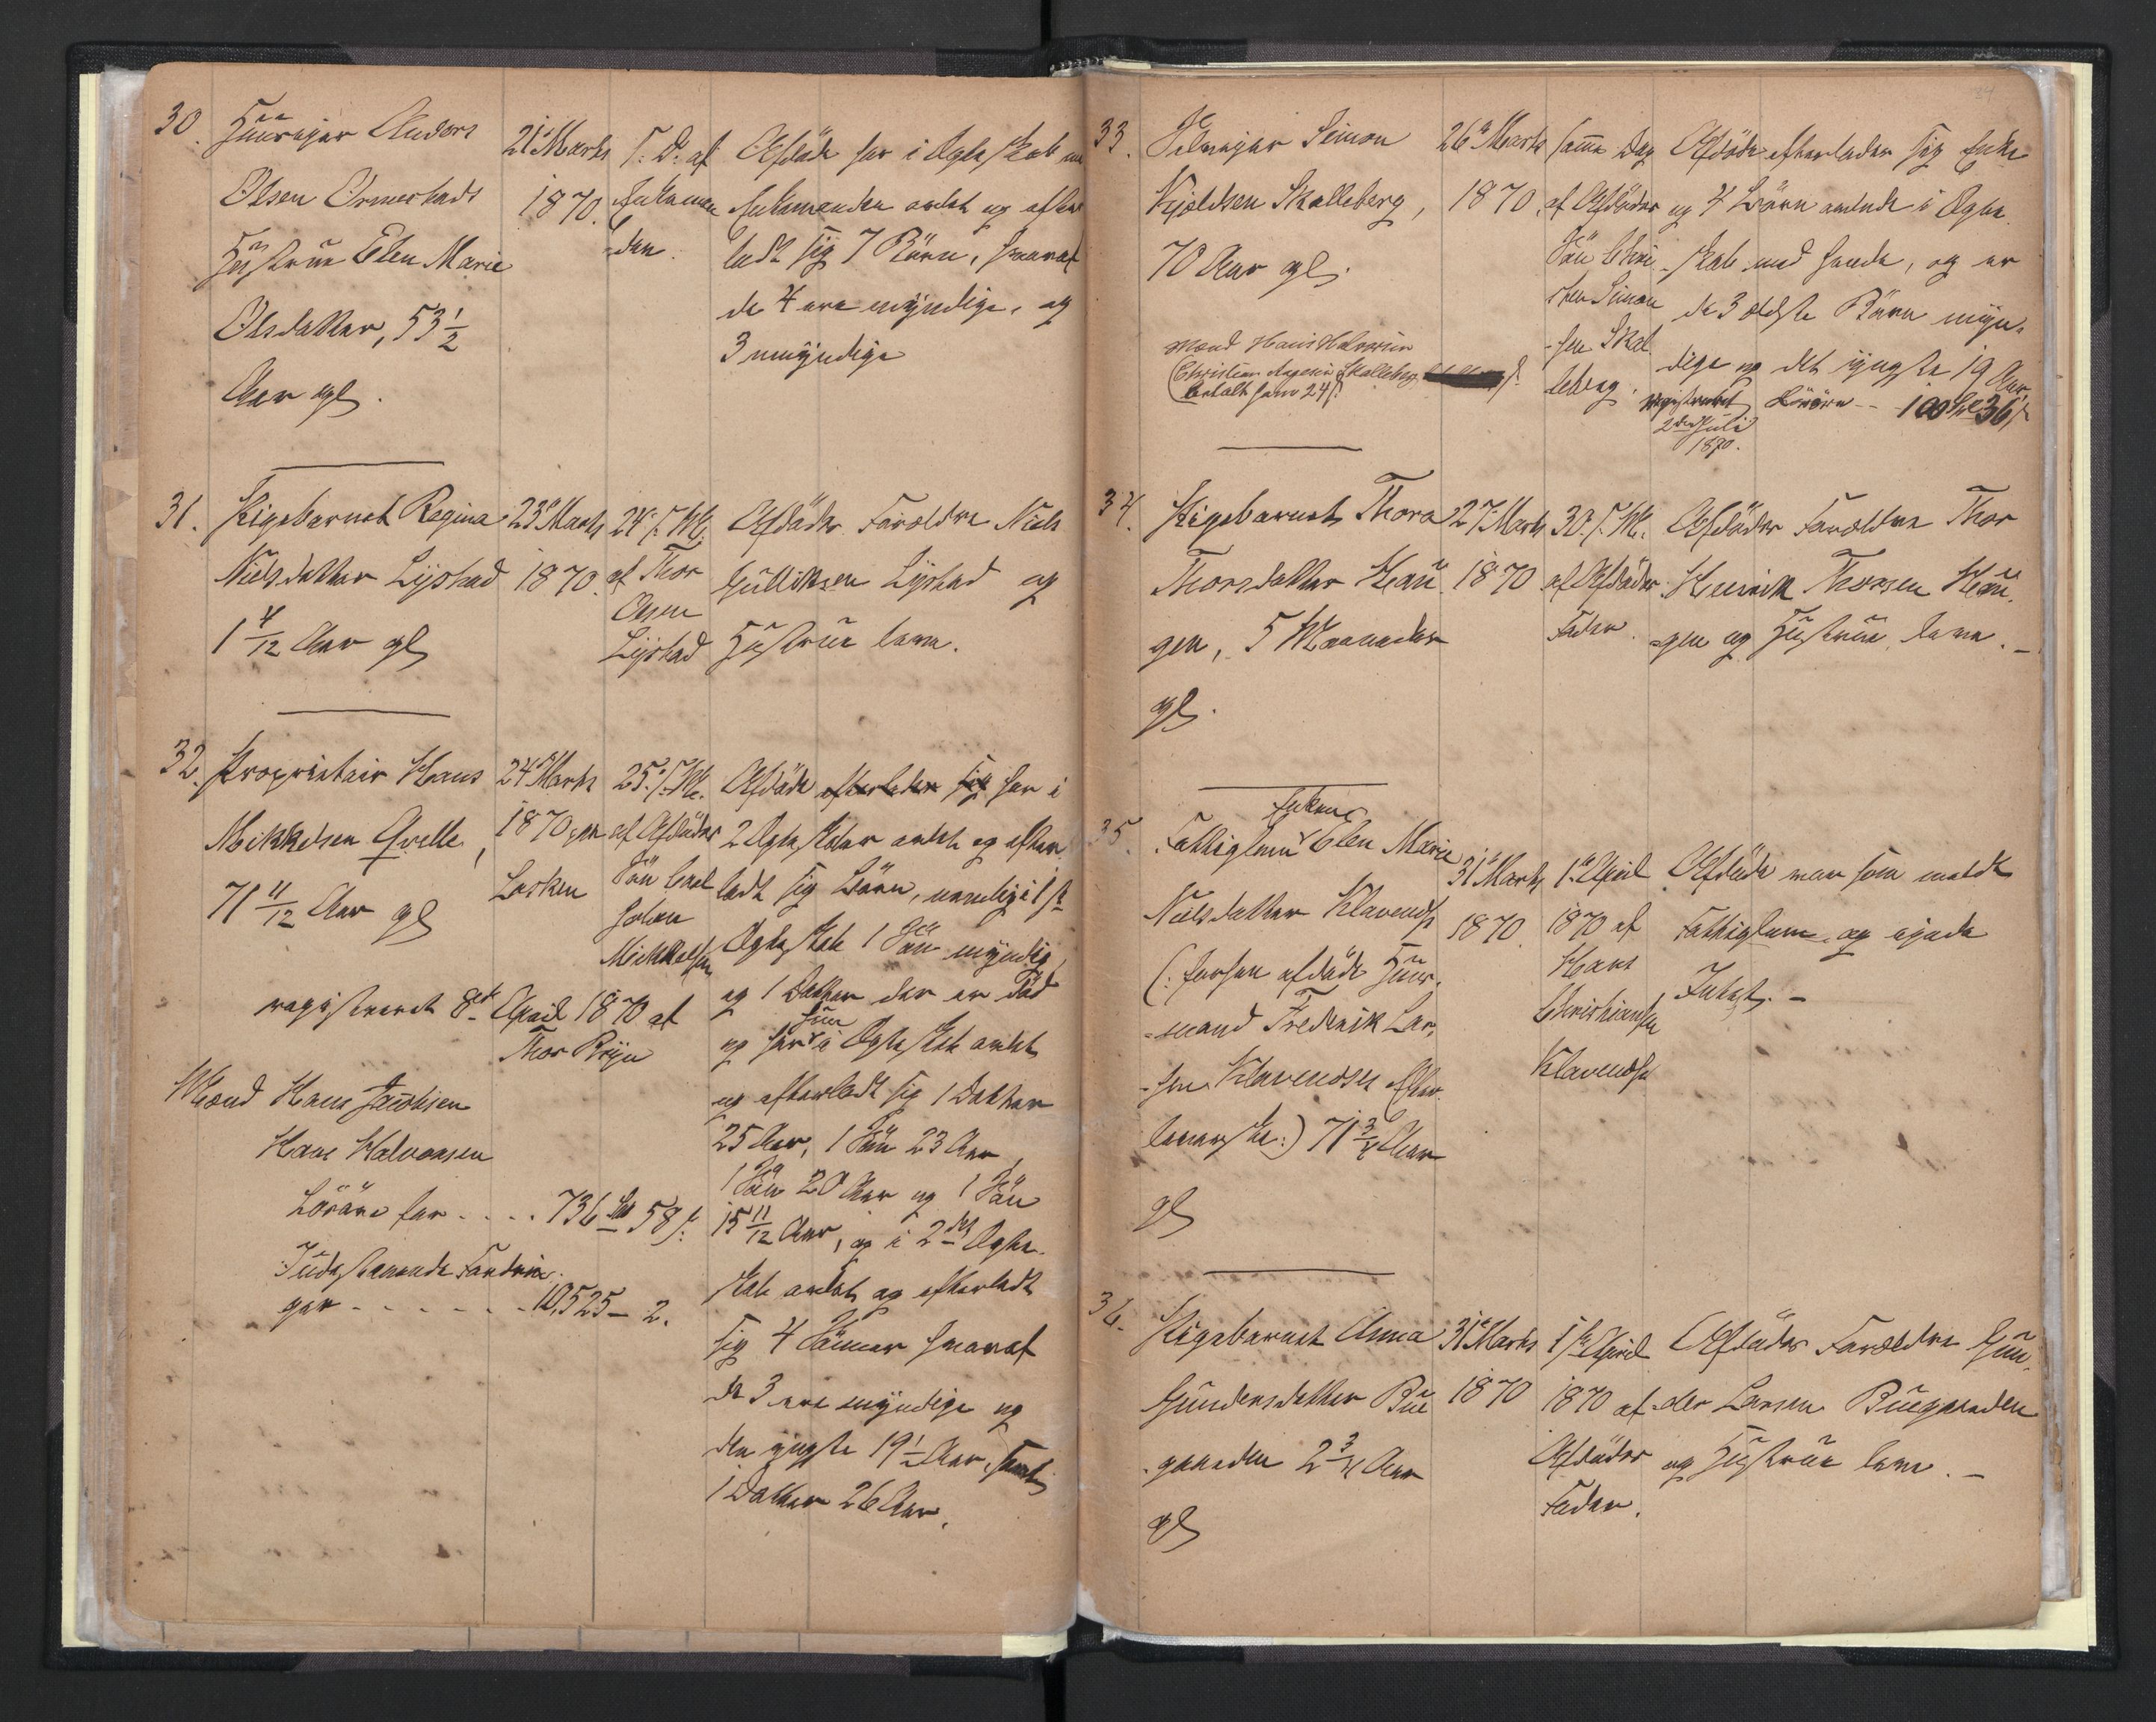 30. Huusejer Anders
Olsen Ormestads
Hustrue Elen Marie
Olsdatter, 53 1/2
Aar gl.
21de Marts
1870.
s. D. af
Enkeman
=den.
Afdöde har i Ægteskab med
Enkemanden avlet og efter
ladt sig 7 Börn, hvoraf
de 4 ere myndige, og
3 umyndige
31. Pigebarnet Regina
Nielsdatter Lijstad
1 4/12 Aar gl
23de Marts
1870.
24de s. M.
af Thor
Olsen
Lijstad
Afdödes Forældre Niels
Gulliksen Lijstad og
Hustrue leve.
32. Proprietair Hans
Mikkelsen Qvelle,
71 11/12 Aar gl
24de Marts
1870 paa
Losken
25de s. M.
af Afdödes
Sön Carl
Johan
Mikkelsen
Afdöde efterlader sig har i
2 Ægteskaber avlet og efter
ladt sig Börn, nemlig i 1ste
Ægteskab 1 Sön myndig,
og 1 Datter der er död
og har hun i Ægteskab avlet
og efterladt sig 1 Datter
25 Aar, 1 Sön 23 Aar,
1 Sön 20 Aar og 1 Sön
15 11/12 Aar, og i 2det Ægte-
skab avlet og efterladt
sig 4 Sönner hvoraf
de 3 ere myndige og
den yngste 19 1/2 Aar, samt
1 Datter 26 Aar.
registreret 8de April 1870 af
Thor Bryn
Mænd Hans Jacobsen
Hans Halvorsen
Lösöre for . . . . 736 Sp 58 s.
Udestaaende Fordrin
ger - - - - - - 10,525 - 2.
33. Selvejer Simon
Kjeldsen Skalleberg,
70 Aar gl.
26de Marts
1870,
samme Dag
af Afdödes
Sön Chri
sten Simon
-sen Skal
leberg.
Afdöde efterlader sig Enke
og 4 Börn avlede i Ægte
-skab med hende, og er
de 3 ældste Börn myn-
dige og det yngste 19 Aar
registreret Lösöre -- 100 Sp 36 s
2den Juli
1870.
Mænd Hans Halvorsen
Christian Aagesen Skalleberg
betalt ham 24 s.
34. Pigebarnet Thora
Thorsdatter Hau
gen, 5 Maaneder
gl.
27 Marts
1870
30. s. M.
af Afdödes
Fader.
Afdödes Forældre Thor
Henrik Thorsen Hau
=gen og Hustrue leve. -
35. Fattiglem Enken Elen Marie
Nielsdatter Klavenæs
(: forhen afdöde Huus-
=mand Fredrik Lar-
-sen Klavenæs efter
leverske :) 71 3/4 Aar
gl
31te Marts
1870.
1ste April
1870 af
Hans
Christiansen
Klavenæs
Afdöde var som meldt
Fattiglem, og ejede
Intet. -
36. Pigebarnet Anna
Gundersdatter Bue
gaarden 2 3/4 Aar
gl
31te Marts
1870
1ste April
1870 af
Afdödes
Fader.
Afdödes Forældre Gun
-der Larsen Buegaarden
og Hustrue leve. -